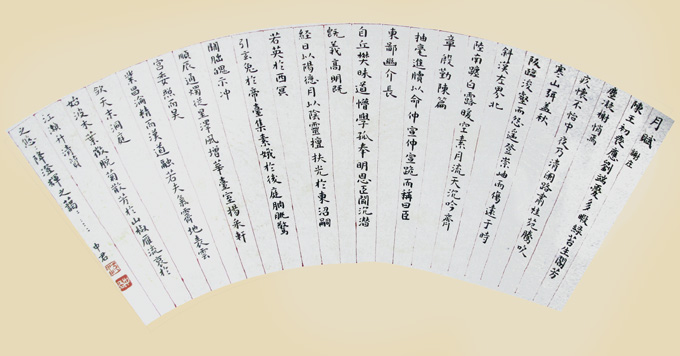 月賦 謝莊
陳王初喪應劉端憂多暇綠苔生閣芳
塵凝榭悄焉
疚懷不怡中夜乃清蘭路肅桂苑騰吹
寒山弭蓋秋
阪臨浚壑而怨遙登崇岫而傷遠于時
斜漢左界北
陸南躔白露曖空素月流天沉吟齊
章殷勤陳篇
抽毫進牘以命仲宣仲宣跪而稱曰臣
東鄙幽介長
自丘樊味道懵學孤奉明恩臣聞沉潛
既義高明既
經日以陽德月以陰靈擅扶光於東沼嗣
若英於西冥
引玄兔於帝臺集素娥於後庭朒朓警
闕朏魄示沖
順辰通燭從星澤風增華臺室揚采軒
宮委照而吳
業昌淪精而漢道融若夫氣霽地表雲
斂天末洞庭
始波木葉微脫菊散芳於山椒雁流哀於
江瀨升清質
之悠悠降澄輝之藹……